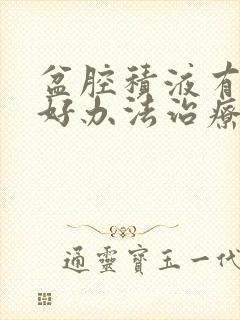 盆腔積液有
好办法治療
通靈寶玉一代